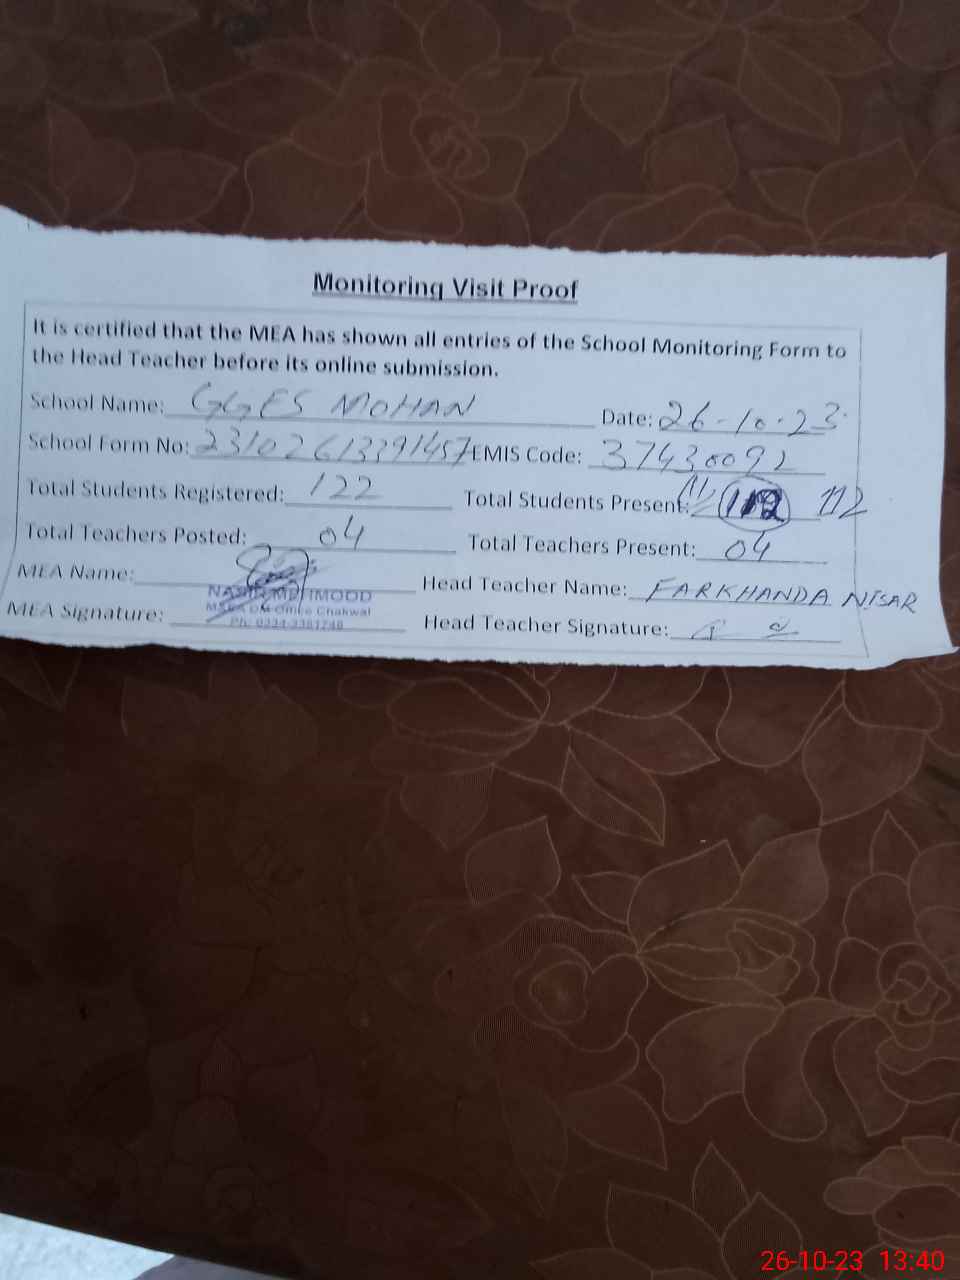 Monitoring Visit Proof
It is certified that the MEA has shown all entries of the School Monitoring Form to
the Head Teacher before its online submission.
School Name: GGES MOHAN Date: 26-10-23
School Form No: EMIS Code: 37430092
Total Students Registered: 122 Total Students Present: 112 112
Total Teachers Posted: 04 Total Teachers Present: 04
MEA Name: Head Teacher Name: FARKHANDA NISAR
MEA Signature: Head Teacher Signature:
Office Chakwal
26-10-23 13:40